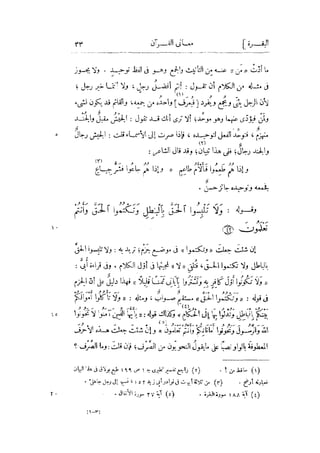 البقرة ] معانى القرآن ٣٣
ما أدّت « مَن » عنه من التأنيث والجمع وهو فى لفظ توحيد . ولا يجوز
فى مثله من الكلام أن تقول : أنتم أفضل رجل ، ولا أنتما خير رجل ؛
لأن الرجل يثنى ويجمع ويفرد [ فيعرف ] (١) واحده من جمعه ، والقائم قد يكون لشىء
ولمَن فيؤدّى عنهما وهو موحّد ؛ ألا ترى أنك قد تقول : الجيش مقبل والجند
منهزم ، فتوحّد الفعل لتوحيده ، فإذا صرت إلى الأسماء قلت : الجيش رجال ٥
والجند رجال ؛ ففى هذا تبيان (٢) ؛ وقد قال الشاعر :
وإذا هُمُ طعِموا فألأم طاعِمٍ * وإذا هُمُ جاعوا فشرّ جِياع (٣)
فجمعه وتوحيده جائز حسن .
وقوله : وَلَا تَلْبِسُوا الْحَقَّ بِالْبَاطِلِ وَتَكْتُمُوا الْحَقَّ وَأَنْتُمْ
تَعْلَمُونَ ١٠
إن شئت جعلت « وتكتموا » فى موضع جزم ؛ تريد به : ولا تلبسوا الحق
بالباطل ولا تكتموا الحق ، فتلقى « لا » لمجيئها فى أوّل الكلام . وفى قراءة أبىّ :
« وَلَا تَكُونُوا أَوَّلَ كَافِرٍ بِهِ وَتَشْتَرُوا بِآيَاتِى ثَمَنًا قَلِيلًا » فهذا دليل على أن الجزم
فى قوله : « وَتَكْتُمُوا الْحَقَّ » مستقيم صواب ، ومثله : « وَلَا تَأْكُلُوا أَمْوَالَكُمْ
بَيْنَكُمْ بِالْبَاطِلِ وَتُدْلُوا بِهَا إِلَى الْحُكَّامِ » (٤) وكذلك قوله : « يَا أَيُّهَا الَّذِينَ آمَنُوا لَا تَخُونُوا ١٥
اللهَ وَالرَّسُولَ وَتَخُونُوا أَمَانَاتِكُمْ وَأَنْتُمْ تَعْلَمُونَ » (٥) وإن شئت جعلت هذه الأحرف
المعطوفة بالواو نصبا على ما يقول النحويون من الصَّرْف ؛ فإن قلت : وما الصَّرْف ؟
(١) ساقط من أ . (٢) راجع تفسير الطبرى ج ١ ص ١٩٩ طبع بولاق فى هذا البيان
فعبارته أوضح . (٣) من ثلاثة أبيات فى نوادر أبى زيد ١٥٢ نسبت إلى رجل جاهلى .
(٤) آية ١٨٨ سورة البقرة . (٥) آية ٢٧ سورة الأنفال . ٢٠
(٣-١)